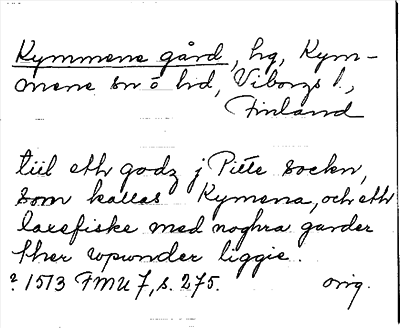 Kymmene gård, hg, Kym-
mene sn o hd, Viborgs l.,
Finland
tiil eth godz j Piite sockn,
som kallas Kymena, och eth
laxefiske med noghra garder
ther wpwnder liggie.
? 1513 FMU 7, s. 275. orig.